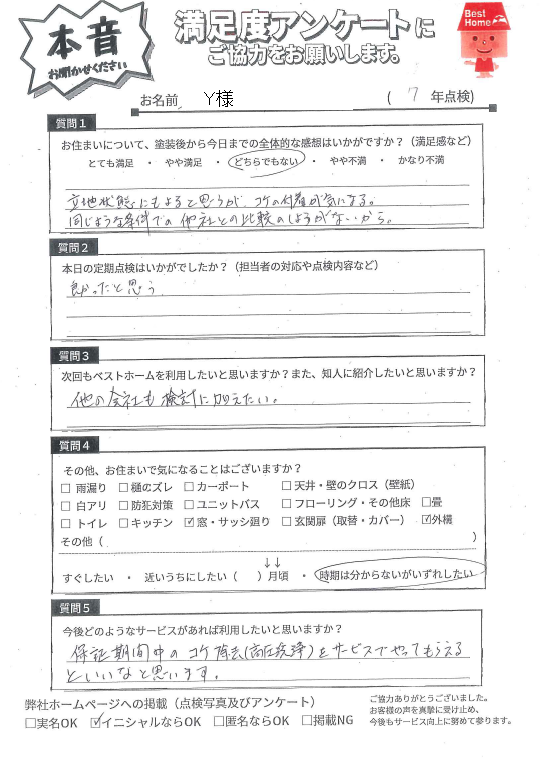 本音
お聞かせください
満足度アンケートに
ご協力をお願いします。
Best Home
お名前 Y様 ( 7 年点検)
質問1
お住まいについて、塗装後から今日までの全体的な感想はいかがですか？（満足感など）
とても満足 ・ やや満足 ・ どちらでもない ・ やや不満 ・ かなり不満
立地状態にもよると思うが、コケの付着が気になる。
同じような条件での他社との比較のしようがないから。
質問2
本日の定期点検はいかがでしたか？（担当者の対応や点検内容など）
良かったと思う
質問3
次回もベストホームを利用したいと思いますか？また、知人に紹介したいと思いますか？
他の会社も検討に加えたい。
質問4
その他、お住まいで気になることはございますか？
☐ 雨漏り ☐ 樋のズレ ☐ カーポート ☐ 天井・壁のクロス（壁紙）
☐ 白アリ ☐ 防犯対策 ☐ ユニットバス ☐ フローリング・その他床 ☐畳
☐ トイレ ☐ キッチン ☑ 窓・サッシ廻り ☐ 玄関扉（取替・カバー） ☑外構
その他（ ）
↓↓
すぐしたい ・ 近いうちにしたい（ ）月頃 ・ 時期は分からないがいずれしたい
質問5
今後どのようなサービスがあれば利用したいと思いますか？
保証期間中のコケ除去(高圧洗浄)をサービスでやってもらえる
といいなと思います。
弊社ホームページへの掲載（点検写真及びアンケート）
☐実名OK ☑イニシャルならOK ☐匿名ならOK ☐掲載NG
ご協力ありがとうございました。
お客様の声を真摯に受け止め、
今後もサービス向上に努めて参ります。